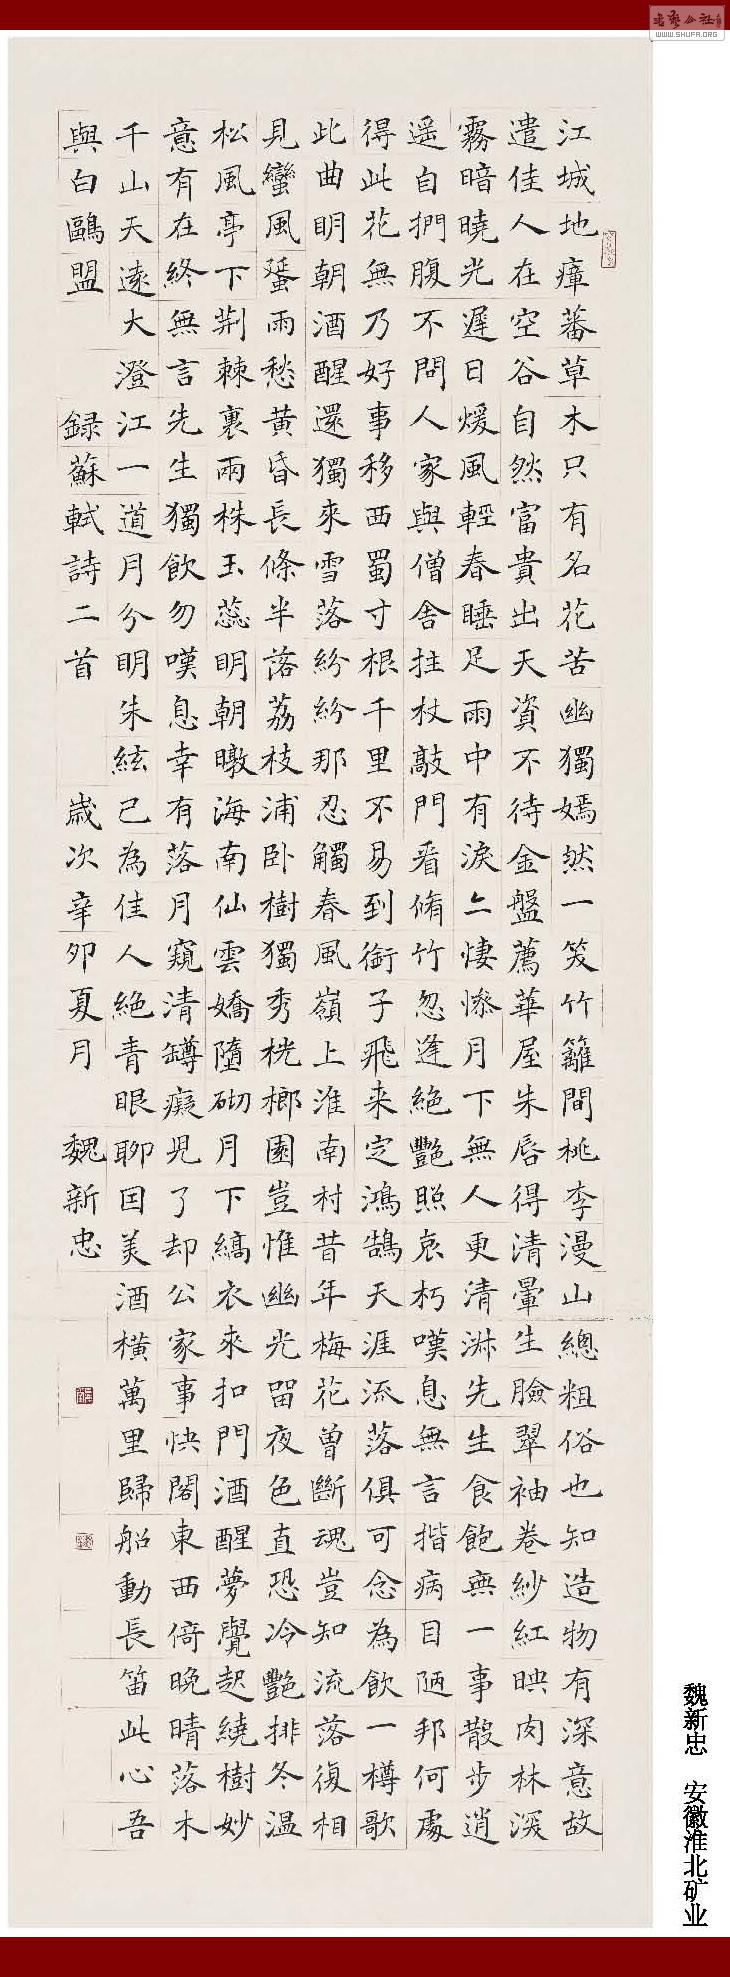 江城地瘴蕃草木只有名花苦幽獨嫣然一笑竹籬間桃李漫山總粗俗也知造物有深意故
遣佳人在空谷自然富貴出天資不待金盤薦華屋朱唇得清暈生臉翠袖卷紗紅映肉林深
霧暗曉光遲日煖風輕春睡足雨中有淚亦悽慘月下無人更清淑先生食飽無一事散步逍
遥自捫腹不問人家與僧舍拄杖敲門看脩竹忽逢絶艷照哀朽嘆息無言揩病目陋邦何處
得此花無乃好事移西蜀寸根千里不易到銜子飛来定鴻鵠天涯流落俱可念為飲一樽歌
此曲明朝酒醒還獨來雪落紛紛那忍觸春風嶺上淮南村昔年梅花曾斷魂豈知流落復相
見蠻風蜑雨愁黄昏長條半落荔枝浦卧樹獨秀桄榔園豈惟幽光留夜色直恐冷艷排冬温
松風亭下荆棘裏兩株玉蕊明朝暾海南仙雲嬌墮砌月下縞衣來扣門酒醒夢覺起繞樹妙
意有在終無言先生獨飲勿嘆息幸有落月窺清罇癡児了却公家事快閣東西倚晚晴落木
千山天遠大澄江一道月分明朱絃已為佳人絶青眼聊囙美酒橫萬里歸船動長笛此心吾
與白鷗盟 録蘇軾詩二首 歲次辛卯夏月 魏新忠
魏新忠 安徽淮北矿业
WWW.SHUFA.ORG